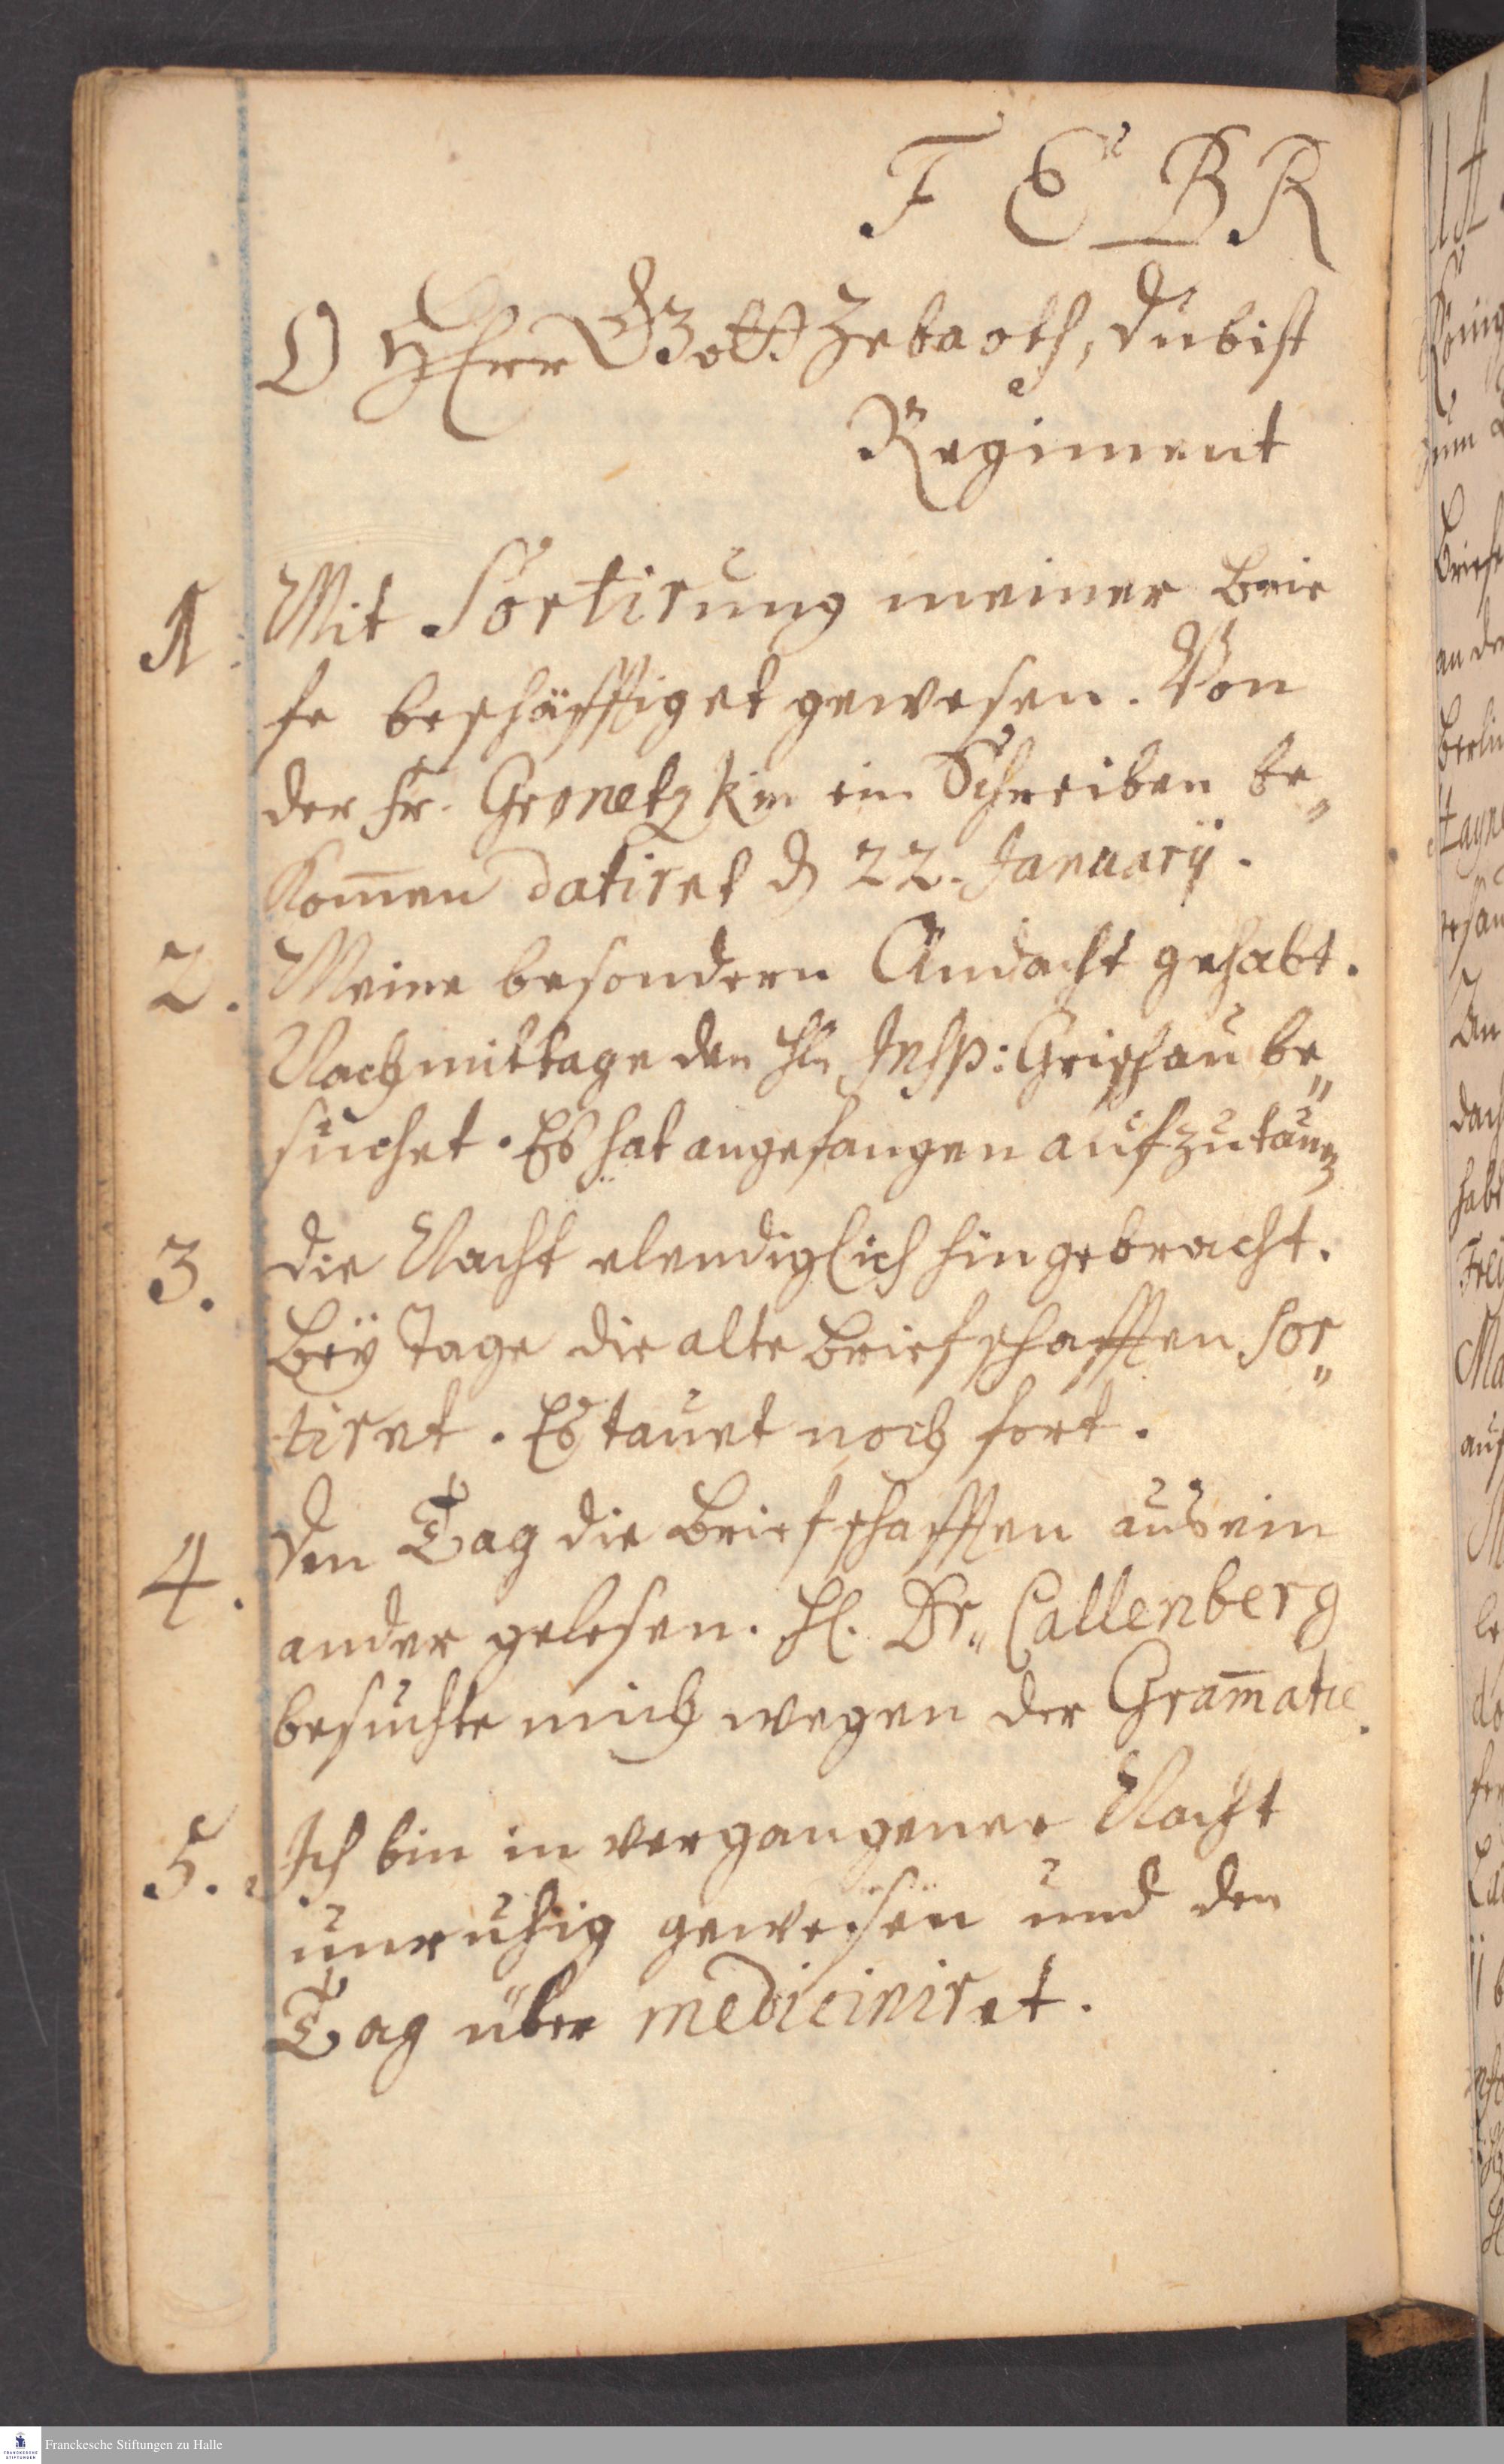 FEBR
O HErr GOtt Zebaoth, du bist
Regiment
1. Mit Sortirung meiner Brie
fe beschäfftiget gewesen. Von
der Fr. Gronetzkin ein Schreiben be„
kom̅en datiret d. 22. Januarij.
2. Meine besondern Andacht gehabt.
Nachmittage den Hln Insp: Grischau be„
suchet. Es hat angefangen aufzutauen
3. die Nacht elendiglich hingebracht.
Bey Tage die alte Briefschafften sor„
tiret. Es tauet noch fort.
4. den Tag die Briefschafften ausein
ander gelesen. Hl. Dr„ Callenberg
besuchte mich wegen der Gram̅atic.
5. Ich bin in vergangener Nacht
unruhig gewesen und den
Tag über mediciniret.
König
zum
Briefe
an der
Berlin
An
habe
Franckesche Stiftungen zu Halle